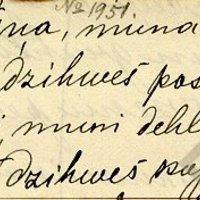 № 1951.
ņa, muna
dzihweś pos
muni dehl
dzihweś